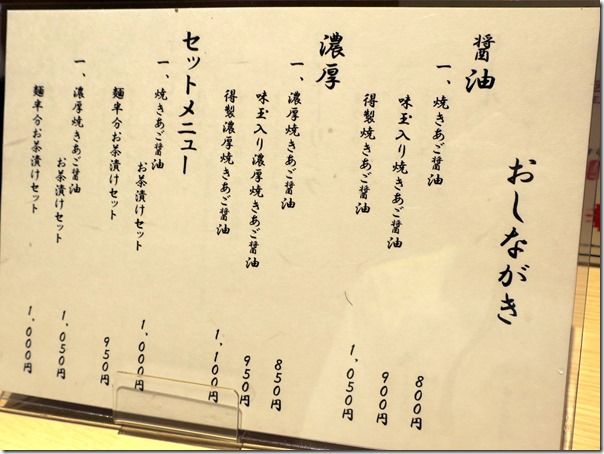 おしながき
醤油
一、焼きあご醤油 800円
味玉入り焼きあご醤油 900円
得製焼きあご醤油 1,050円
濃厚
一、濃厚焼きあご醤油 850円
味玉入り濃厚焼きあご醤油 950円
得製濃厚焼きあご醤油 1,100円
セットメニュー
一、焼きあご醤油
お茶漬けセット 1,000円
麺半分お茶漬けセット 950円
一、濃厚焼きあご醤油
お茶漬けセット 1,050円
麺半分お茶漬けセット 1,000円